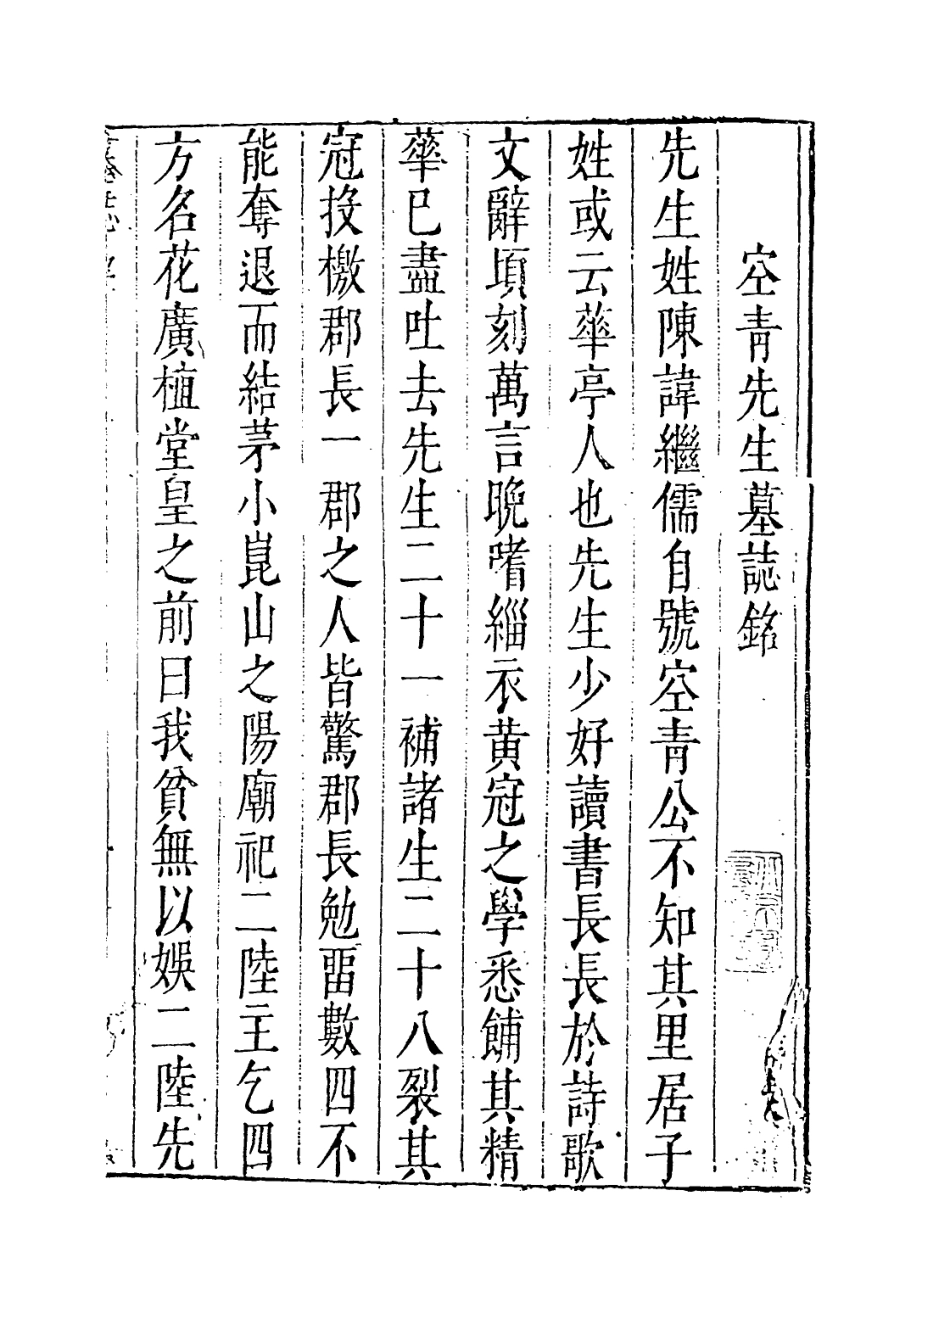 空青先生墓誌銘
先生姓陳諱繼儒自號空青公不知其里居子
姓或云華亭人也先生少好讀書長長於詩歌
文辭頃刻萬言晚嗜緇衣黃冠之學悉餔其精
華已盡吐去先生二十一補諸生二十八裂其
冠投檄郡長一郡之人皆驚郡長勉畱數四不
能奪退而結茅小崑山之陽廟祀二陸主乞四
方名花廣植堂皇之前曰我貧無以娛二陸先